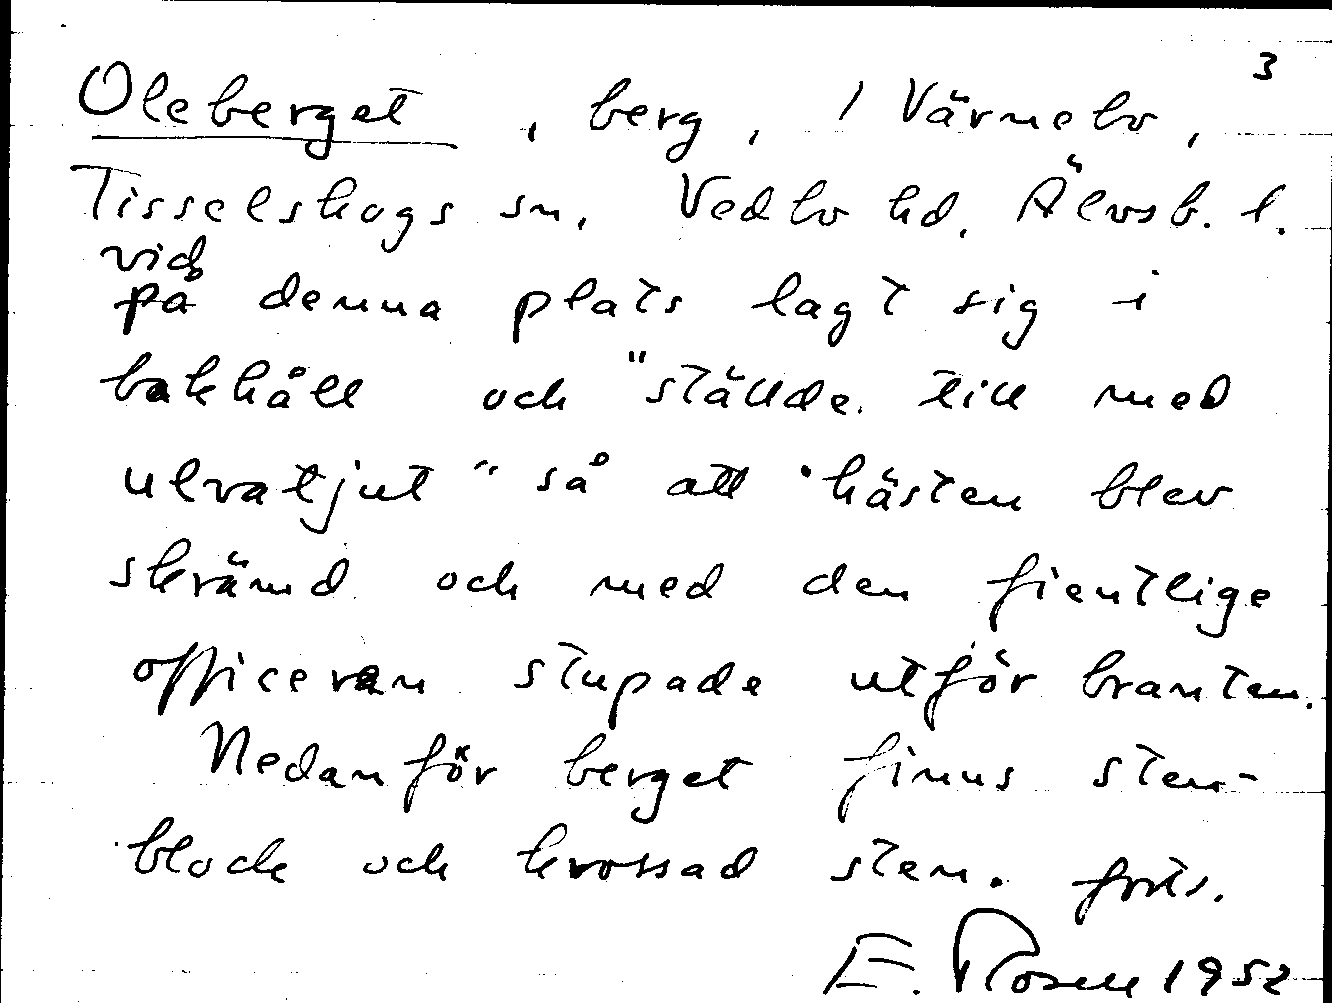 3
Oleberget, berg, / Värmebo,
Tisselskogs sn, Vedbo hd, Älvsb. l.
vid
på denna plats lagt sig i
bakhåll och "ställde till med
ulvatjut" så att hästen blev
skrämd och med den fientlige
officeren stupade utför branten.
Nedanför berget finns sten-
block och krossad sten. forts.
E. Rosell 1952